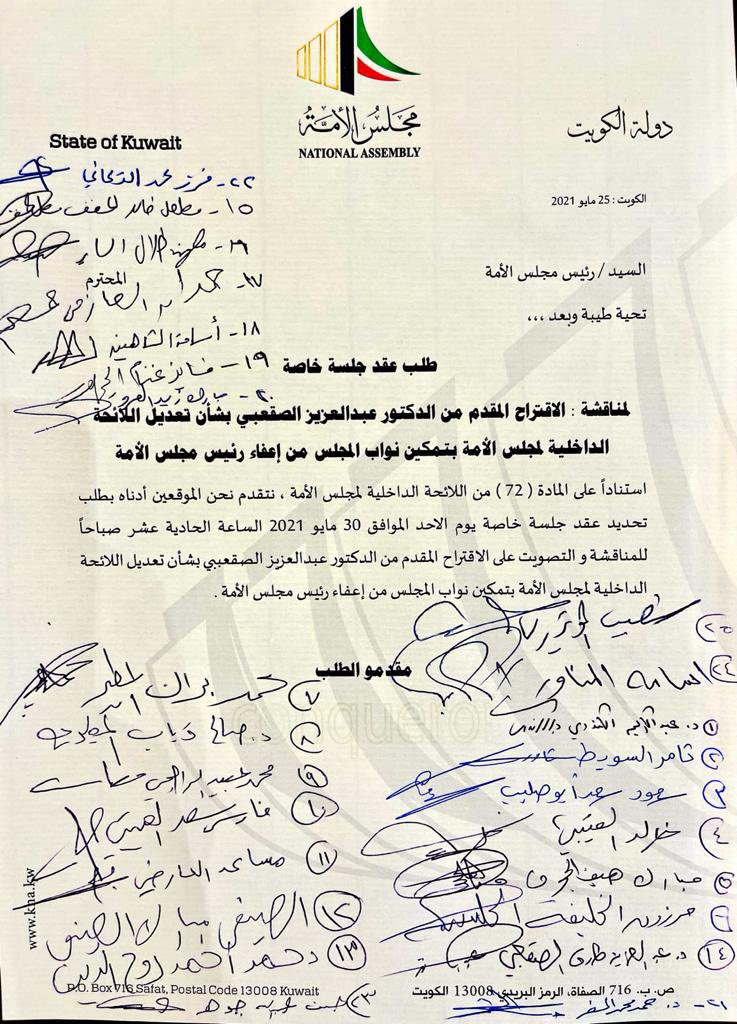 مجلس الأمة
NATIONAL ASSEMBLY
دولة الكويت
State of Kuwait
الكويت : 25 مايو 2021
السيد / رئيس مجلس الأمة
المحترم
تحية طيبة وبعد ،،،
طلب عقد جلسة خاصة
لمناقشة : الاقتراح المقدم من الدكتور عبدالعزيز الصقعبي بشأن تعديل اللائحة
الداخلية لمجلس الأمة بتمكين نواب المجلس من إعفاء رئيس مجلس الأمة
استناداً على المادة ( 72 ) من اللائحة الداخلية لمجلس الأمة ، نتقدم نحن الموقعين أدناه بطلب
تحديد عقد جلسة خاصة يوم الاحد الموافق 30 مايو 2021 الساعة الحادية عشر صباحاً
للمناقشة و التصويت على الاقتراح المقدم من الدكتور عبدالعزيز الصقعبي بشأن تعديل اللائحة
الداخلية لمجلس الأمة بتمكين نواب المجلس من إعفاء رئيس مجلس الأمة .
مقدمو الطلب
٢٢-
١٥-
١٦-
١٧-
١٨- أسامة الشاهين
١٩- فايز غنام
٢٠- مبارك
٢٥
٢٤ اسامه المناور
١ د. عبدالكريم الكندري
٢ ثامر السويط
٣ سعود سعد أبوصليب
٤ خالد العتيبي
٥ مبارك هيف الحجرف
٦ مرزوق الخليفة
١٤ د. عبدالعزيز طارق الصقعبي
٧ محمد براك المطير
٨ د. صالح ذياب المطيري
٩ محمد عبيد الراجحي
١٠ فارس سعد العتيبي
١١ مساعد العارضي
١٢ الصيفي مبارك الصيفي
١٣ د. حمد أحمد روح الدين
٢٣
٢١- د. حمد محمد المطر
www.kna.kw
P.O. Box 716 Safat, Postal Code 13008 Kuwait
ص. ب. 716 الصفاة، الرمز البريدي 13008 الكويت
conqueror